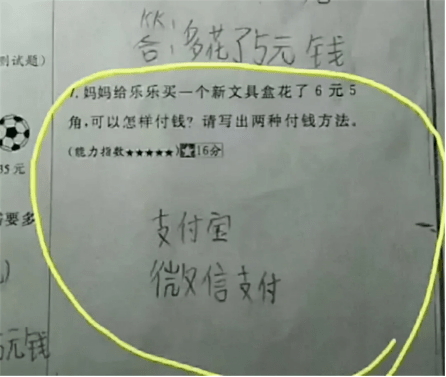 KK
答:多花了5元钱
测试题)
7.妈妈给乐乐买一个新文具盒花了6元5
角,可以怎样付钱?请写出两种付钱方法。
(能力指数★★★★★)★16分
35元
需要多
支付宝
微信支付
)
5元钱